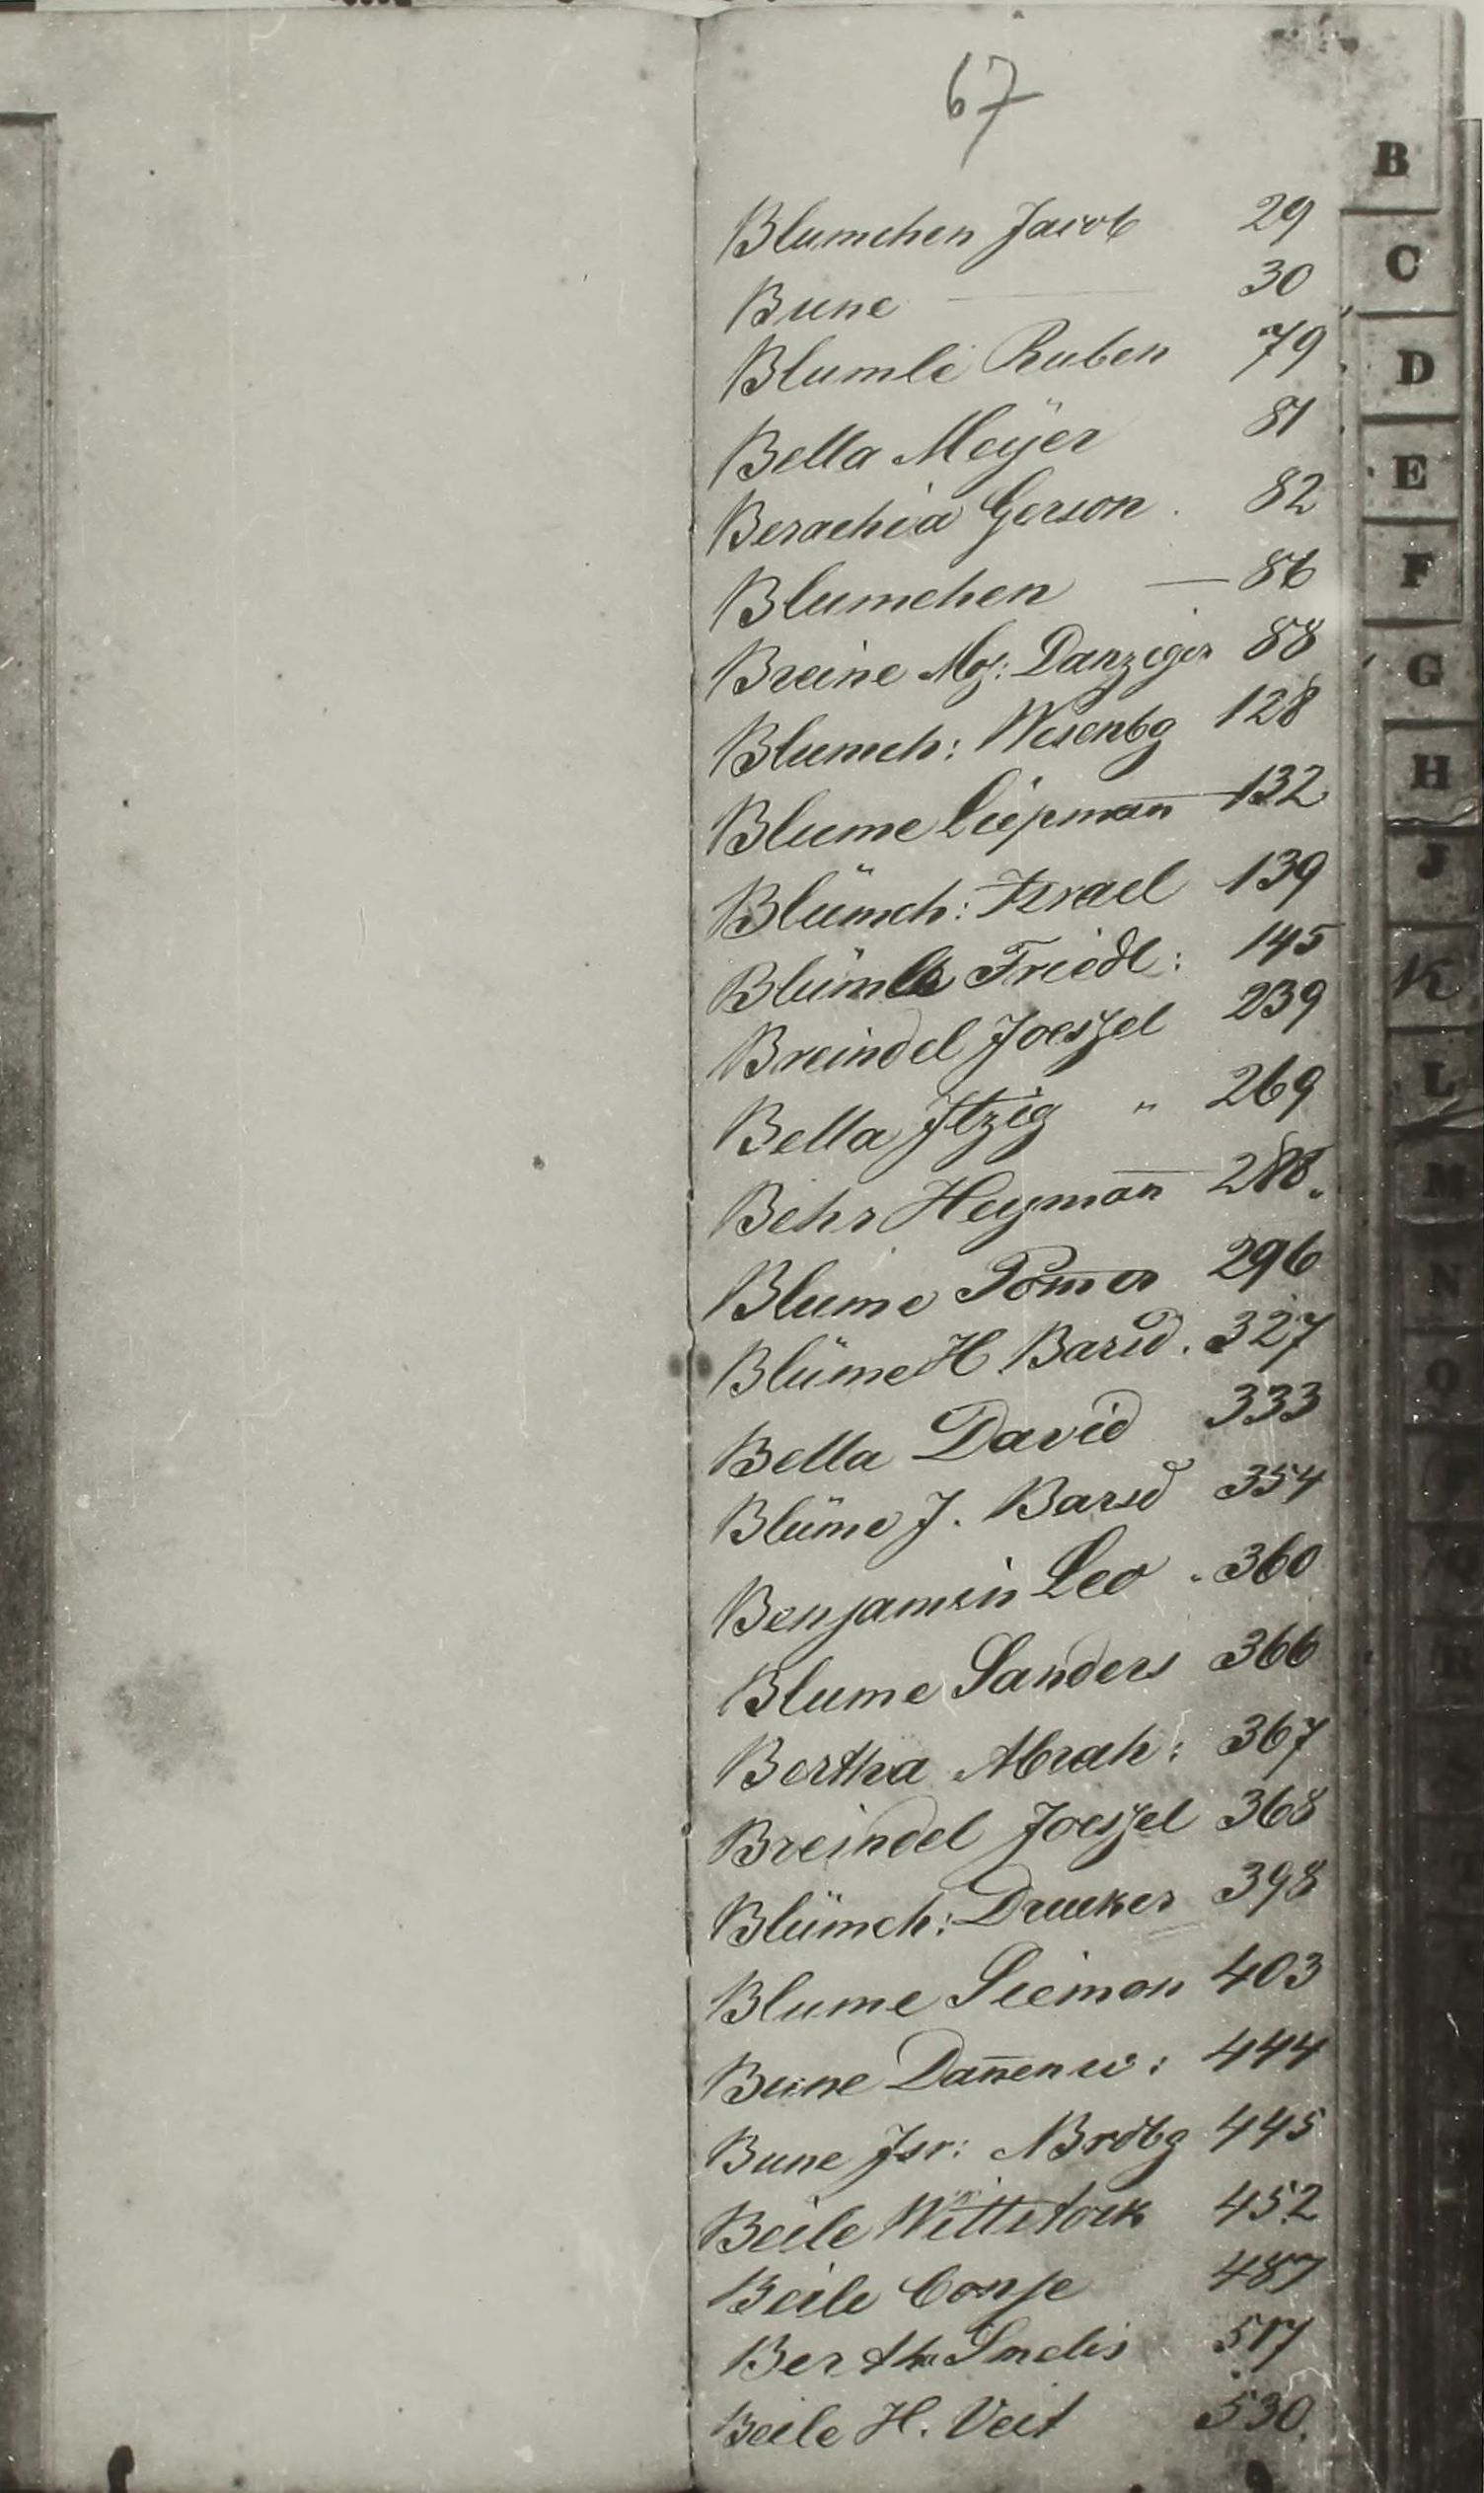 67
Blumchen Jacob 29
Bune — 30
Blumle Ruben 79
Bella Meÿer 81
Berachia Gerson . 82
Blumchen — 86
Breine Mos: Danziger 88
Blumch: Wesenbg 128
Blume Liepman̅ 132
Blümch: Israel 139
Blümle Friedl: 145
Breindel Joesſel 239
Bella Itzig " 269
Behr Heyman̅ 288.
Blume Pom̅er 296
Blüme H Barsd. 327
Bella David 333
Blüme J. Barsd 354
Benjamin Leo . 360
Blume Sanders 366
Bertha Abrah: 367
Breindel Joesſel 368
Blümch: Drucker 398
Blume Siemon 403
Bune Dan̅enw: 444
Bune Isr: NBrdbg 445
Beile Wittstock 452
Beile 487
Bertha 517
Beile H. Veit 530.
B
C
D
E
F
G
H
J
K
L
M
N
O